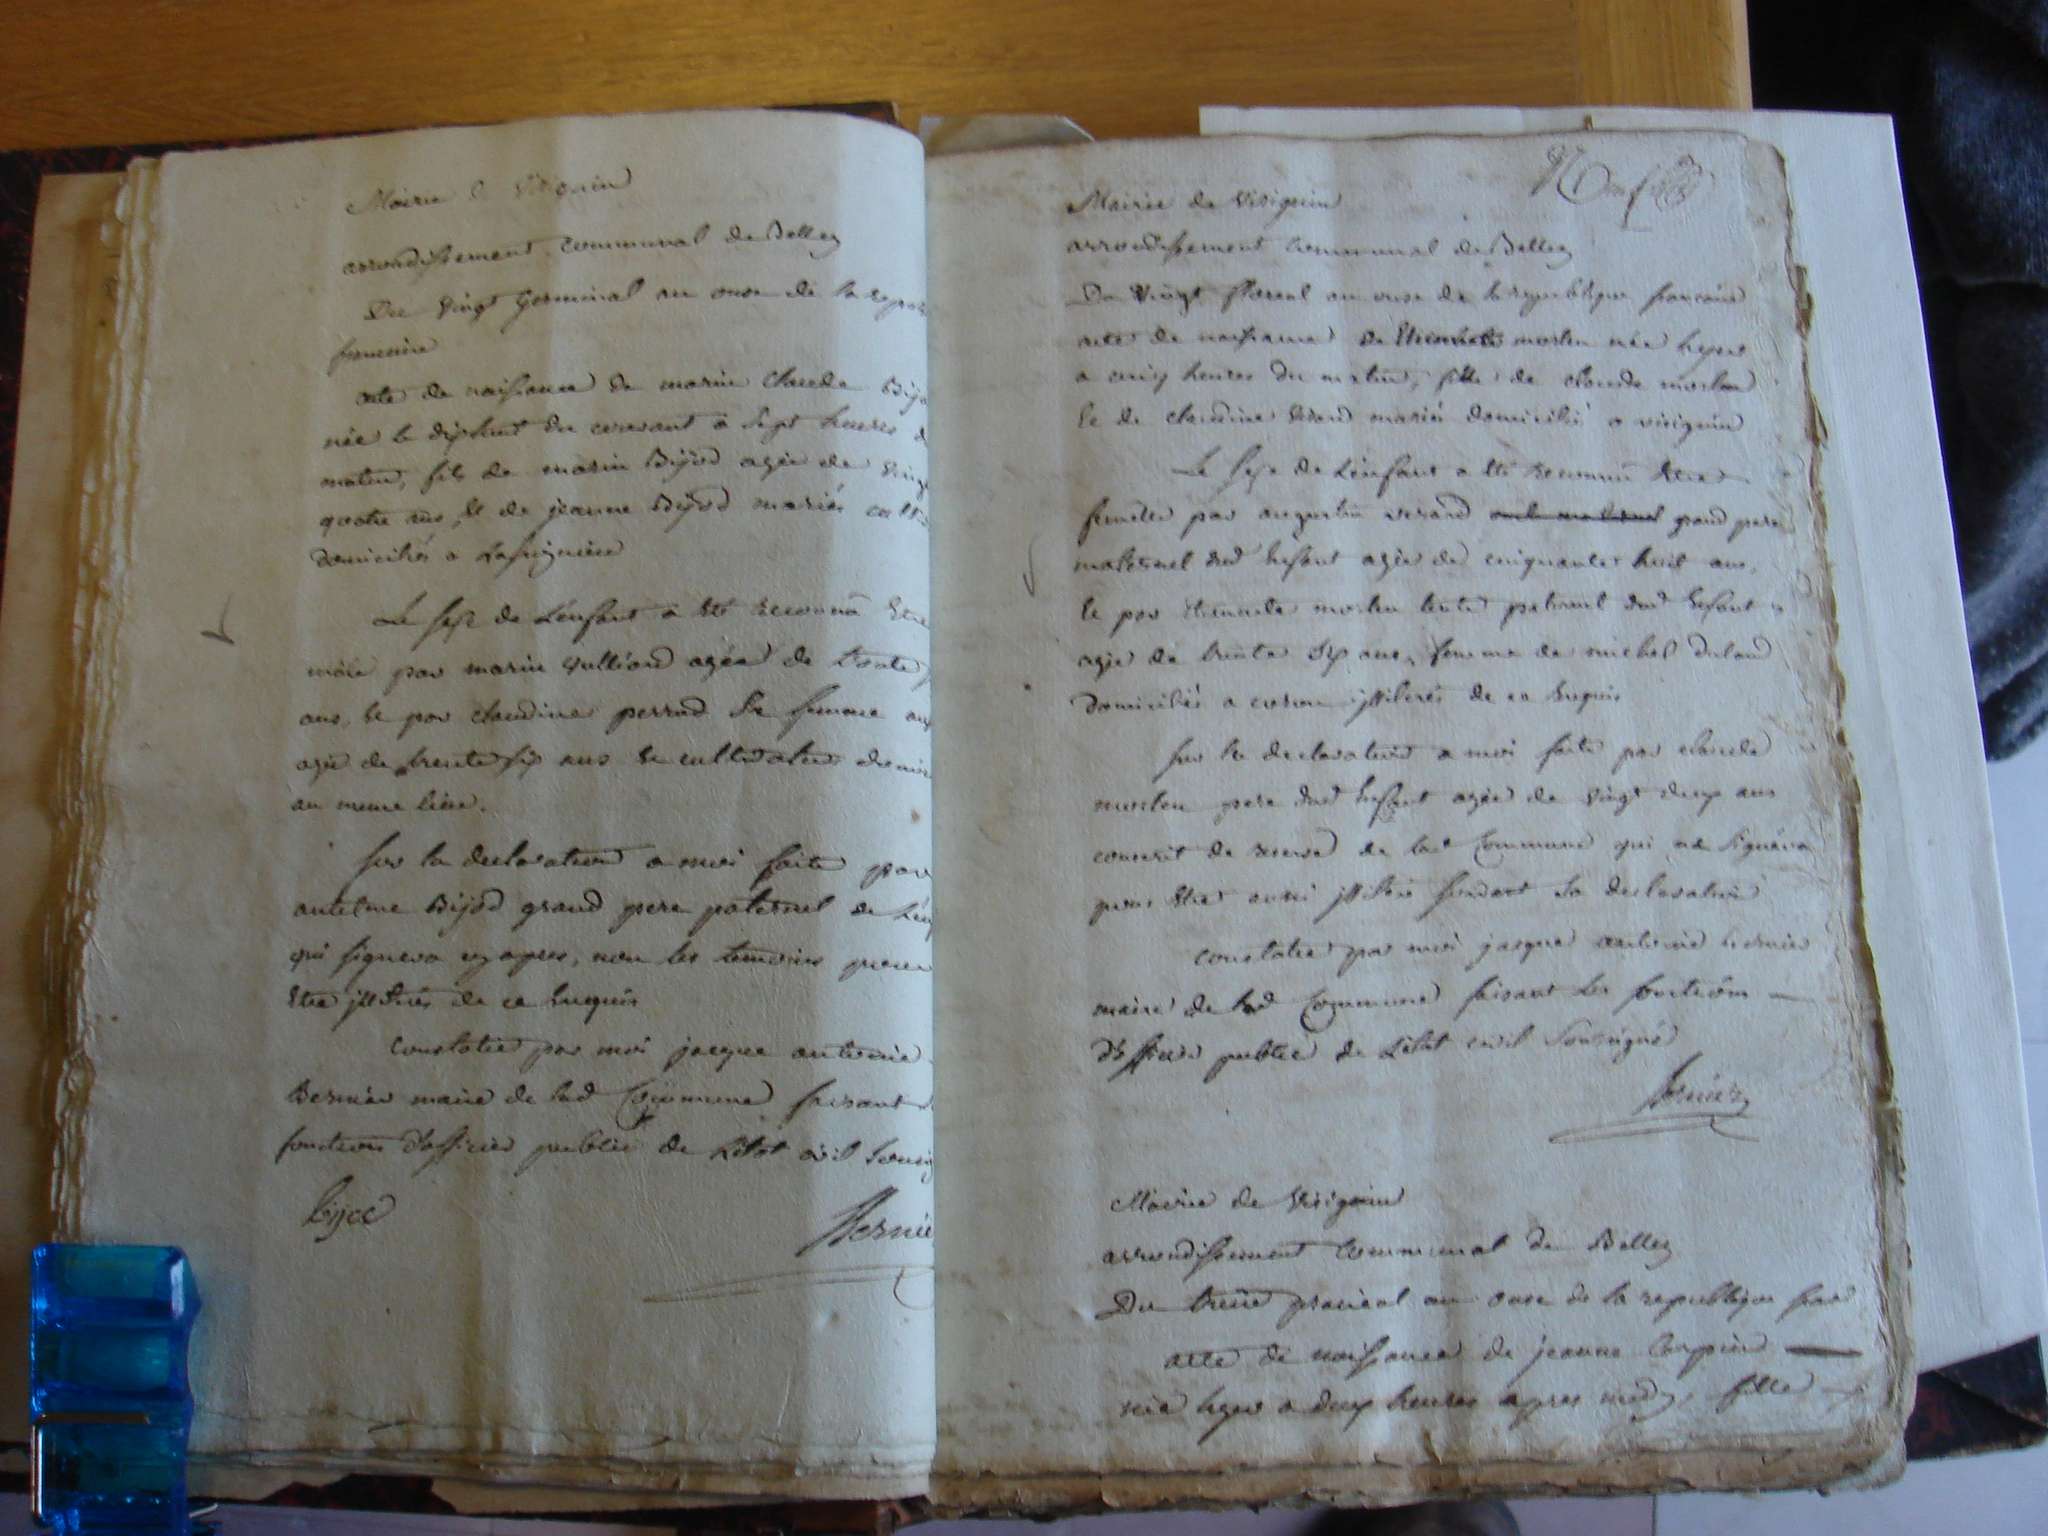 Mairie de Virignin
arrondissement Communal de Belley
Du vingt Germinal an onze de la repu
francaise
acte de naissance de marin Claude Bijo
née le dixhuit du courant a sept heures d
matin, fils de marin Bijod agée de vingt
quatre ans, et de jeanne Bijod mariés
domiciliés a
Le sexe de L'enfant a eté reconnu Etre
mâle par marin vulliod agée de trente
ans, et par claudine perrud sa femme aus
agée de trente six ans et cultivateur domic
au meme lieu.
sur la declaration a moi faite par
antelme Bijod grand pere paternel de L'enf
qui signera cy apres, non les temoins pour
Etre illitérés de ce Enquis
Constatée par moi jacque antoine
Bernier maire de lad Commune faisant
fonction d'officier public de L'état civil sousig
Bijod
Bernie
Mairie de Virignin
arrondissement Communal de Belley
Du vingt floreal an onze de la republique francaise
acte de naissance de Etiennete morlin née hyer
a cinq heures du matin, fille de claude morlin
Et de claudine verand mariés domicilié a virignin
Le sexe de L'enfant a eté reconnu Etre
femelle par augustin verand oncle maternel grand pere
maternel dud Enfant agée de cinquante huit ans,
Et par Etiennete morlin tante paternel dud Enfant
agée de trente six ans, femme de michel
domiciliés a illiterés de ce Enquis
sur la declaration a moi faite par claude
morlin pere dud Enfant agée de vingt deux ans
conscrit de reserve de lad Commune qui ne signera
pour Etre aussi illitéré suivant sa declaration
constatée par moi jacque antoine bernier
maire de lad Commune faisant les fonctions
d'officier public de L'état civil soussigné
Bernier
Mairie de Virignin
arrondissement Communal de Belley
Du treize prairial an onze de la republique fran
acte de naissance de jeanne Carpin
née hyer a deux heures apres midy, fille